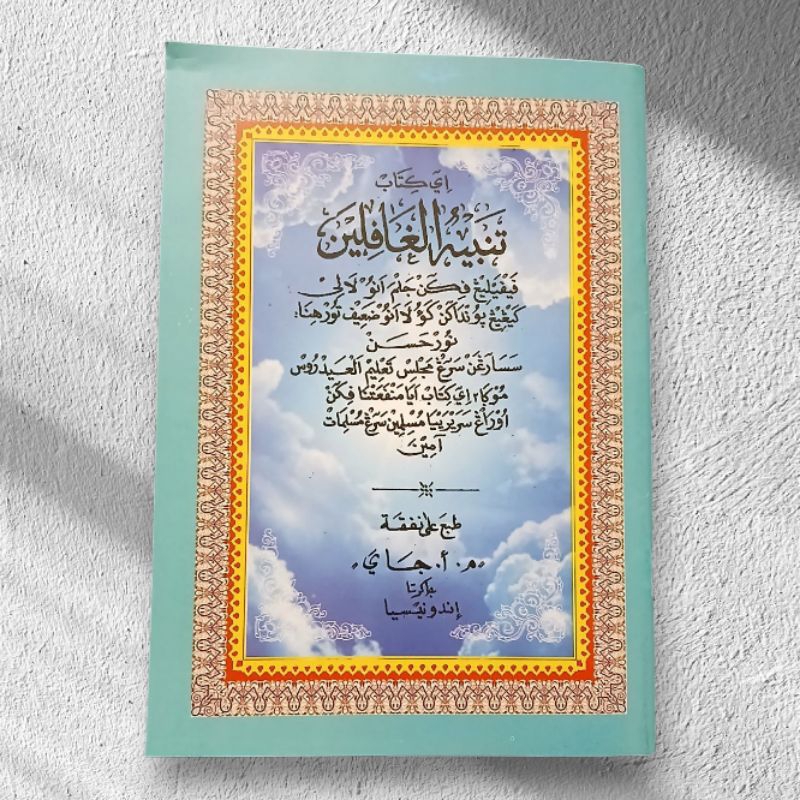 اِيَ كِتَابْ
تَنْبِيْهُ الْغَافِلِيْنَ
فَڠٓيْلِيْڠْ فِكَنْ جَلْمَ اَنُوْ لَالِيْ
كَيْڠِيْڠْ ڤُوْنْدَاكَنْ كَوُلَا اَنُوْ ضَعِيْف تُوْرْ هِنَا:
نُوْرْ حَسَنْ
سَسَارَڠَنْ سَرَڠْ مَجْلِسْ تَعْلِيْمِ الْعَيْدَرُوْسْ
مُوْكَا٢ اِيَ كِتَابْ اَيَا مَنْفَعَتْنَا فِكَنْ
اُوْرَاڠْ سَرَيْرَيْيَا مُسْلِمِيْن سَرَڠْ مُسْلِمَاتْ
آمِيْنَ
طبع على نفقة
"م. أ. جاي"
جاكرتا
إندونيسيا